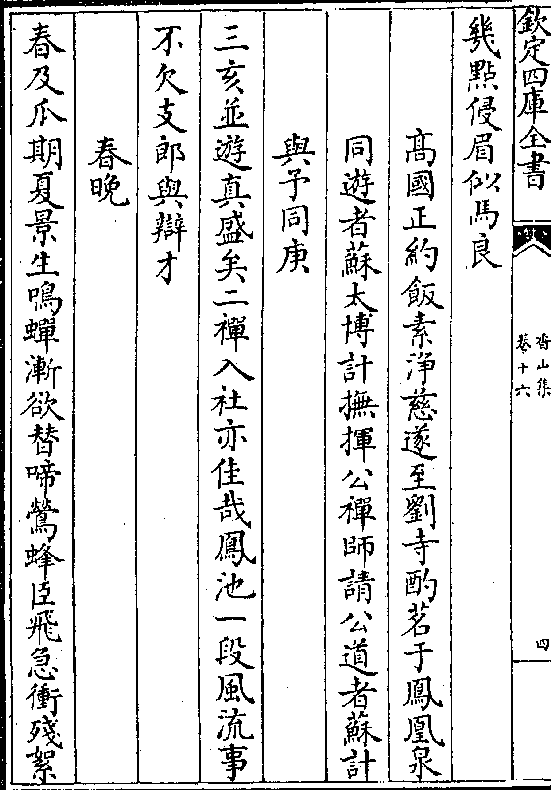 欽定四庫全書
香山集
卷十六
四
幾點侵眉似馬良
高國正約飯素淨慈遂至劉寺酌茗于鳳凰泉
同遊者蘇太博計撫揮公禪師請公道者蘇計
與予同庚
三亥並遊真盛矣二禪入社亦佳哉鳳池一段風流事
不欠支郎與辯才
春晚
春及瓜期夏景生鳴蟬漸欲替啼鶯蜂臣飛急衝殘絮